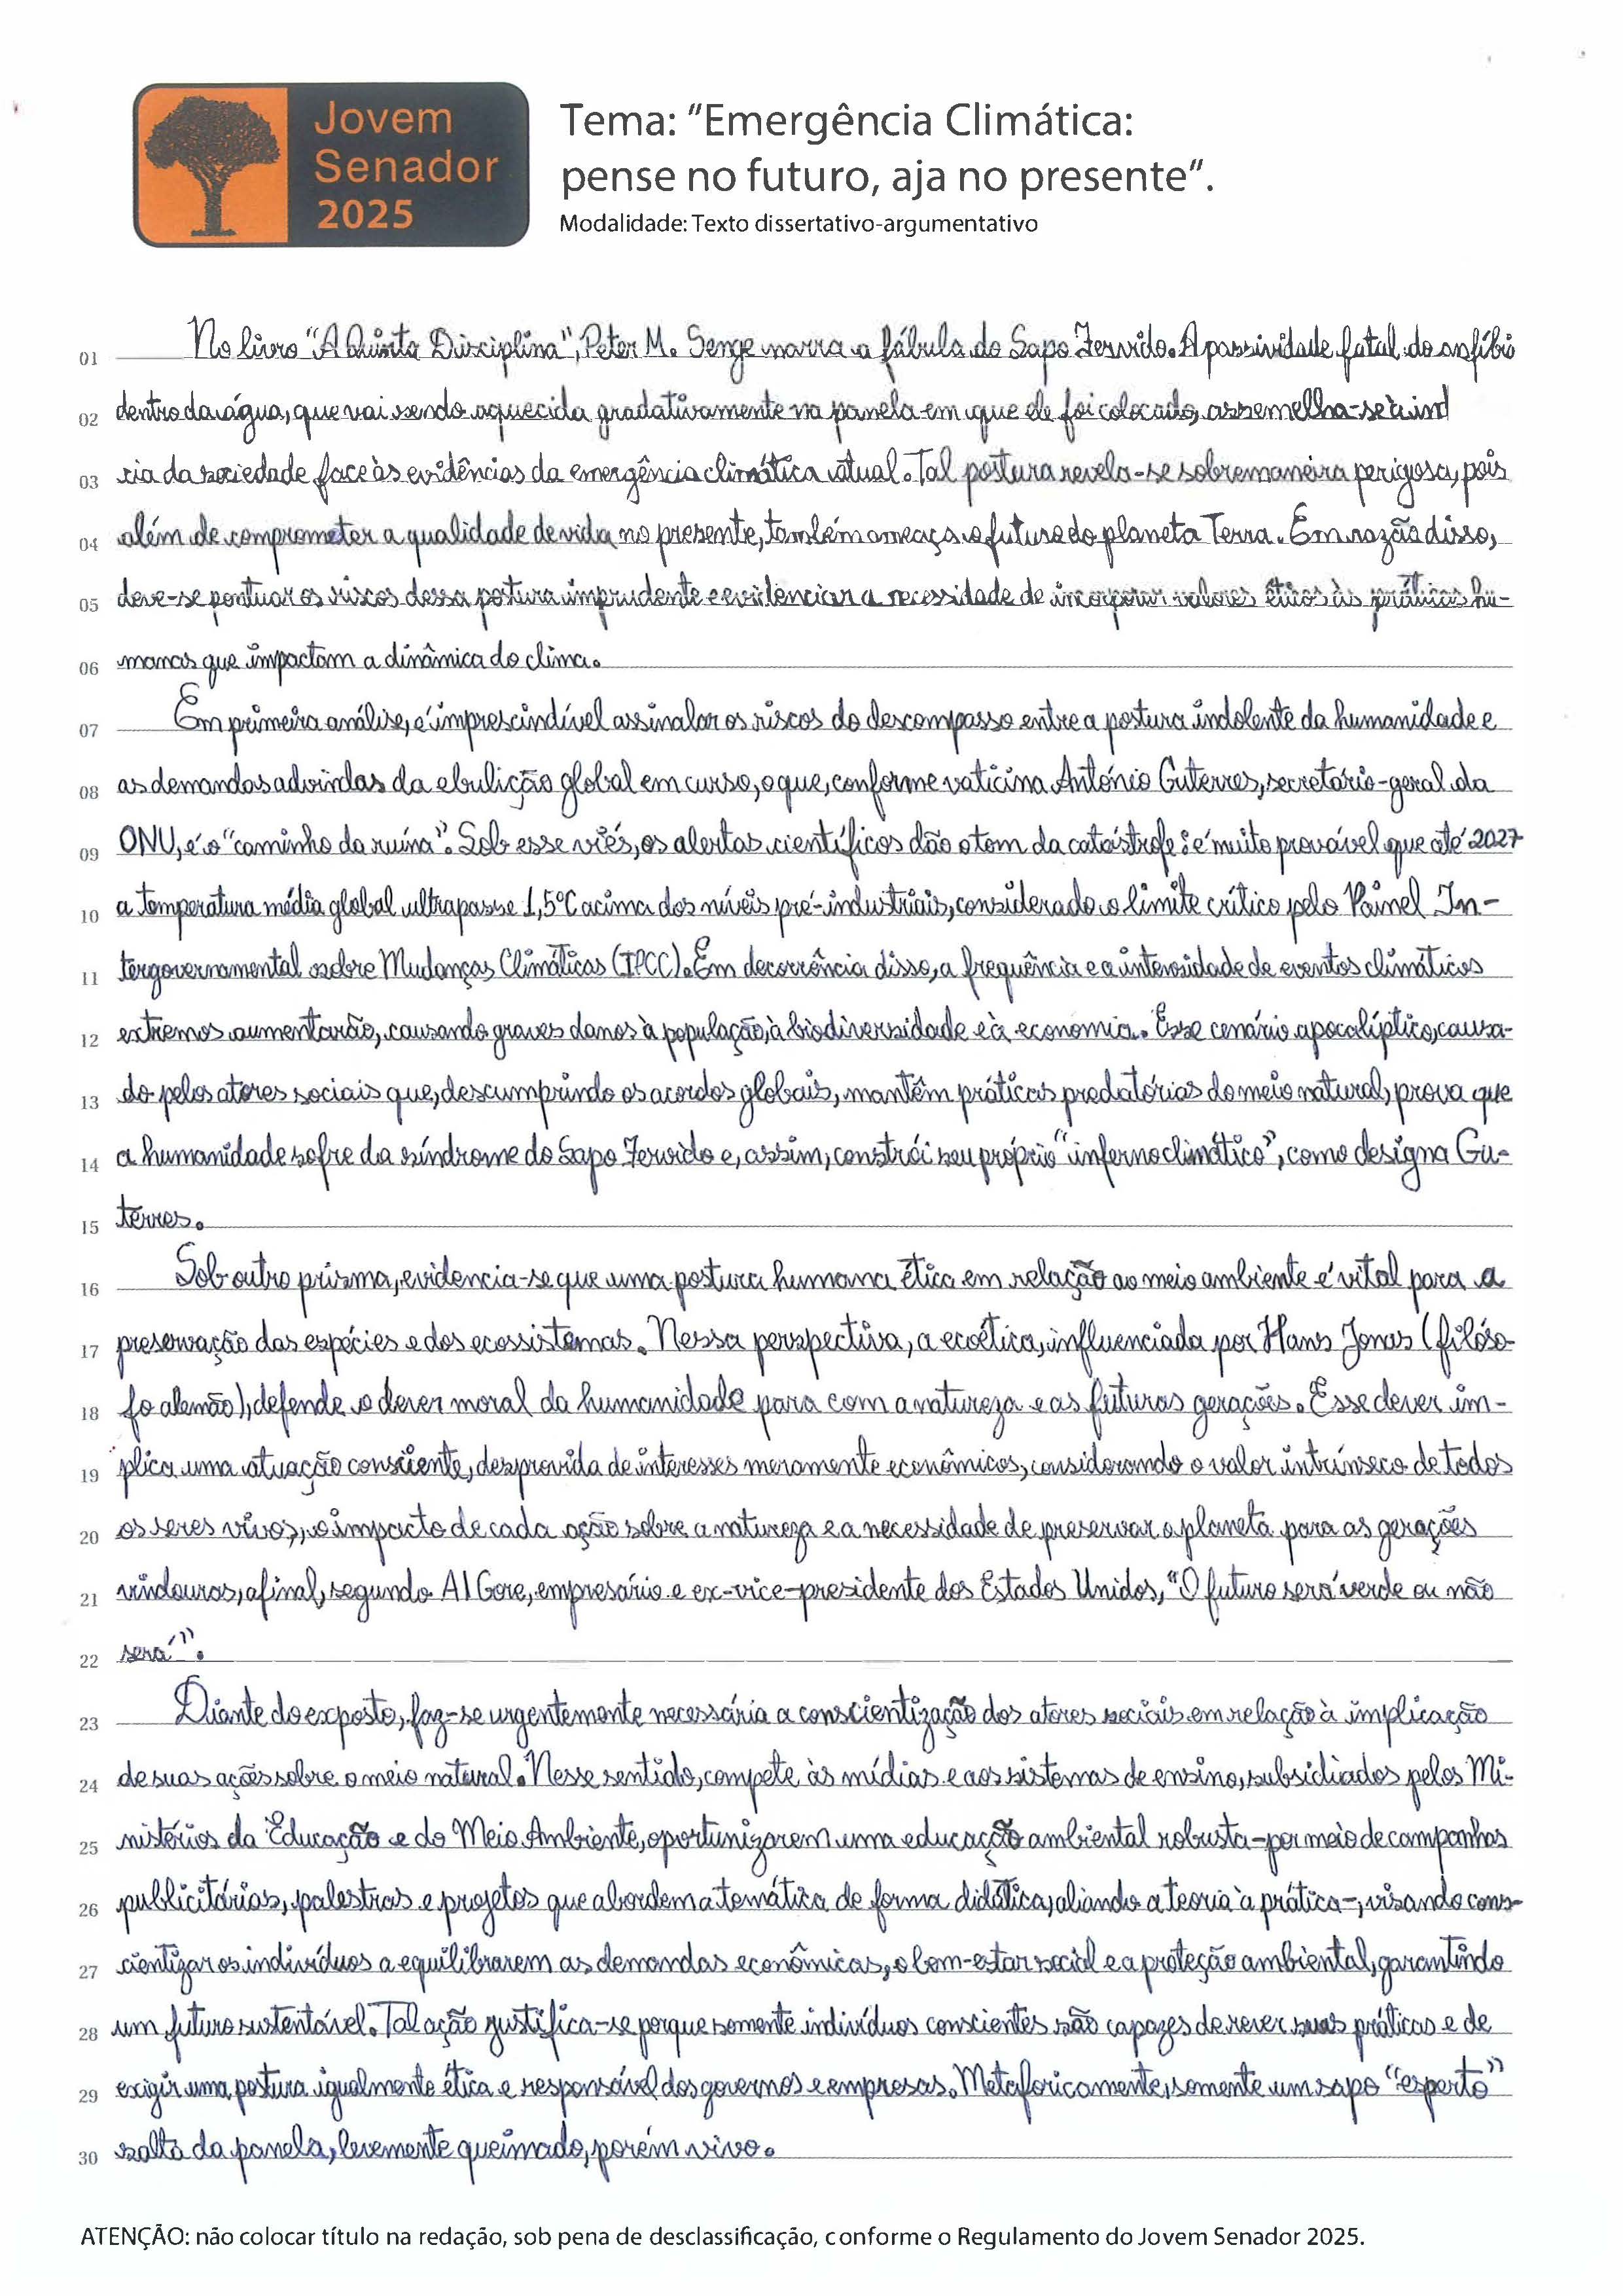 Jovem
Senador
2025
Tema: "Emergência Climática:
pense no futuro, aja no presente".
Modalidade: Texto dissertativo-argumentativo
01 No livro "A Quinta Disciplina", Peter M. Senge narra a fábula do Sapo Fervido. A passividade fatal do anfíbio
02 dentro da água, que vai sendo aquecida gradativamente na panela em que ele foi colocado, assemelha-se à inér
03 cia da sociedade face às evidências da emergência climática atual. Tal postura revela-se sobremaneira perigosa, pois
04 além de comprometer a qualidade de vida no presente, também ameaça o futuro do planeta Terra. Em razão disso,
05 deve-se pontuar os riscos dessa postura imprudente e evidenciar a necessidade de incorporar valores éticos às práticas hu-
06 manas que impactam a dinâmica do clima.
07 Em primeira análise, é imprescindível assinalar os riscos do descompasso entre a postura indolente da humanidade e
08 as demandas advindas da ebulição global em curso, o que, conforme vaticina António Guterres, secretário-geral da
09 ONU, é o "caminho da ruína". Sob esse viés, os alertas científicos dão o tom da catástrofe: é muito provável que até 2027
10 a temperatura média global ultrapasse 1,5°C acima dos níveis pré-industriais, considerado o limite crítico pelo Painel In-
11 tergovernamental sobre Mudanças Climáticas (IPCC). Em decorrência disso, a frequência e a intensidade de eventos climáticos
12 extremos aumentarão, causando graves danos à população, à biodiversidade e à economia. Esse cenário apocalíptico, causa-
13 do pelos atores sociais que, descumprindo os acordos globais, mantêm práticas predatórias do meio natural, prova que
14 a humanidade sofre da síndrome do Sapo Fervido e, assim, constrói seu próprio "inferno climático", como designa Gu-
15 terres.
16 Sob outro prisma, evidencia-se que uma postura humana ética em relação ao meio ambiente é vital para a
17 preservação das espécies e dos ecossistemas. Nessa perspectiva, a ecoética, influenciada por Hans Jonas (filóso-
18 fo alemão), defende o dever moral da humanidade para com a natureza e as futuras gerações. Esse dever im-
19 plica uma atuação consciente, desprovida de interesses meramente econômicos, considerando o valor intrínseco de todos
20 os seres vivos, o impacto de cada ação sobre a natureza e a necessidade de preservar o planeta para as gerações
21 vindouras, afinal, segundo Al Gore, empresário e ex-vice-presidente dos Estados Unidos, "O futuro será verde ou não
22 será".
23 Diante do exposto, faz-se urgentemente necessária a conscientização dos atores sociais em relação à implicação
24 de suas ações sobre o meio natural. Nesse sentido, compete às mídias e aos sistemas de ensino, subsidiados pelos Mi-
25 nistérios da Educação e do Meio Ambiente, oportunizarem uma educação ambiental robusta - por meio de campanhas
26 publicitárias, palestras e projetos que abordem a temática de forma didática, aliando a teoria à prática -, visando cons-
27 cientizar os indivíduos a equilibrarem as demandas econômicas, o bem-estar social e a proteção ambiental, garantindo
28 um futuro sustentável. Tal ação justifica-se porque somente indivíduos conscientes são capazes de rever suas práticas e de
29 exigir uma postura igualmente ética e responsável dos governos e empresas. Metaforicamente, somente um sapo "esperto"
30 salta da panela, levemente queimado, porém vivo.
ATENÇÃO: não colocar título na redação, sob pena de desclassificação, conforme o Regulamento do Jovem Senador 2025.